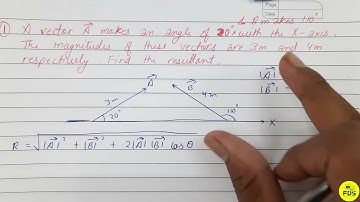 & B makes 110°
① A vector A⃗ makes an angle of 20° with the X-axis.
The magnitudes of these vectors are 3m and 4m
respectively. Find the resultant.
A⃗
B⃗
|A⃗|
|B⃗| =
3m
4m
20°
110°
X
R = √|A⃗|² + |B⃗|² + 2|A⃗| |B⃗| cos θ
FDS